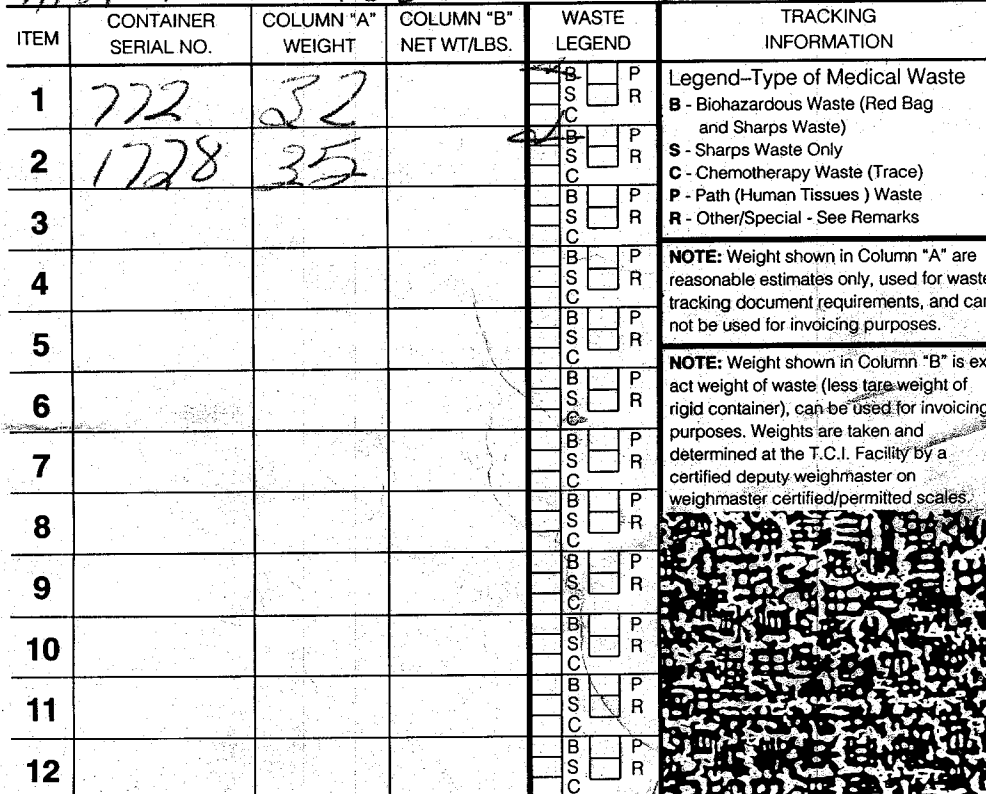 ITEM CONTAINER SERIAL NO. COLUMN "A" WEIGHT COLUMN "B" NET WT/LBS. WASTE LEGEND TRACKING INFORMATION
1 772 32 B S C P R
2 1728 35 B S C P R
3 B S C P R
4 B S C P R
5 B S C P R
6 B S C P R
7 B S C P R
8 B S C P R
9 B S C P R
10 B S C P R
11 B S C P R
12 B S C P R
Legend–Type of Medical Waste
B - Biohazardous Waste (Red Bag
and Sharps Waste)
S - Sharps Waste Only
C - Chemotherapy Waste (Trace)
P - Path (Human Tissues ) Waste
R - Other/Special - See Remarks
NOTE: Weight shown in Column "A" are
reasonable estimates only, used for waste
tracking document requirements, and can
not be used for invoicing purposes.
NOTE: Weight shown in Column "B" is ex
act weight of waste (less tare weight of
rigid container), can be used for invoicing
purposes. Weights are taken and
determined at the T.C.I. Facility by a
certified deputy weighmaster on
weighmaster certified/permitted scales.